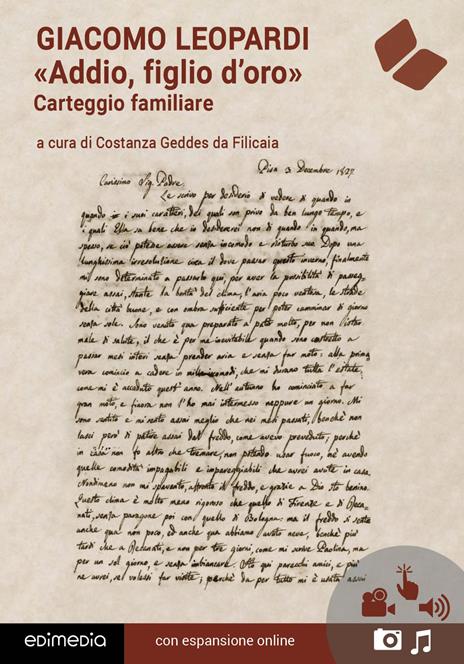 GIACOMO LEOPARDI
«Addio, figlio d'oro»
Carteggio familiare
a cura di Costanza Geddes da Filicaia
Pisa 3. Decembre 1827.
Carissimo Sig. Padre.
Le scrivo per desiderio di vedere di quando in
quando i suoi caratteri, dei quali son privo da ben lungo tempo, e
i quali Ella sa bene che io desidererei non di quando in quando, ma
spesso, se ciò potesse avere senza incomodo e disturbo suo. Dopo una
lunghissima irresoluzione circa il dove passar questo inverno, finalmente
mi sono determinato a passarlo qui, per aver la possibilità di passeg-
giare assai, stante la bontà del clima, l'aria poco ventosa, le strade
della città buone, e con ombra sufficiente per poter camminar di giorno
senza sole. Sono venuto qua preparato a patir molto, per non
male di salute, il che è per me inevitabile quando sono costretto a
passar mesi interi senza prender aria e senza far moto: alla prima-
vera comincio a cadere in mille incomodi, che mi durano tutta l'estate,
come mi è accaduto quest'anno. Nell'autunno ho cominciato a far
gran moto, e finora non l'ho mai intermesso neppure un giorno. Mi
sono sentito e mi sento assai meglio che nei mesi passati, benchè non
lasci però di patire assai dal freddo, come avevo preveduto; perchè
in casa non fo altro che tremare, non potendo usar fuoco, nè avendo
quelle comodità impagabili e impareggiabili che avrei avute in casa.
Nondimeno non mi spavento, affronto il freddo, e grazie a Dio sto benino.
Questo clima è molto meno rigoroso che quello di Firenze e di Reca-
nati, senza paragone poi con quello di Bologna: ma il freddo si sente
anche qua non poco, ed anche qua abbiamo avuto neve, benchè più
tardi che a Recanati, e non per tre giorni, come mi scrive Paolina, ma
per un sol giorno, e senza imbiancare. Ho qui parecchi amici, e più
ne avrei, se volessi far visite; perchè da per tutto mi è usata assai
edimedia
con espansione online